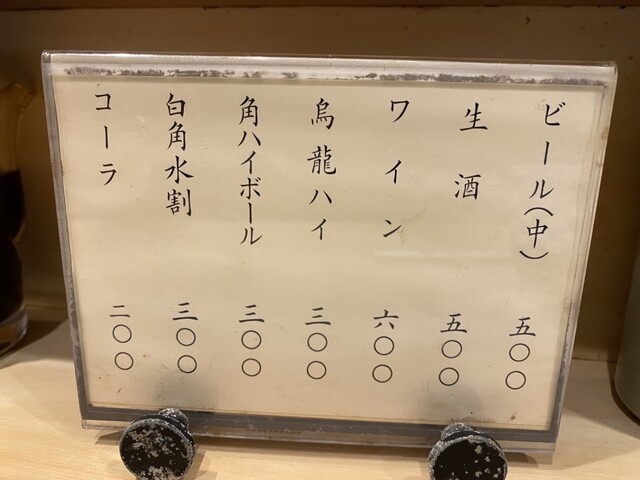 ビール(中) 五〇〇
生酒 五〇〇
ワイン 六〇〇
烏龍ハイ 三〇〇
角ハイボール 三〇〇
白角水割 三〇〇
コーラ 二〇〇